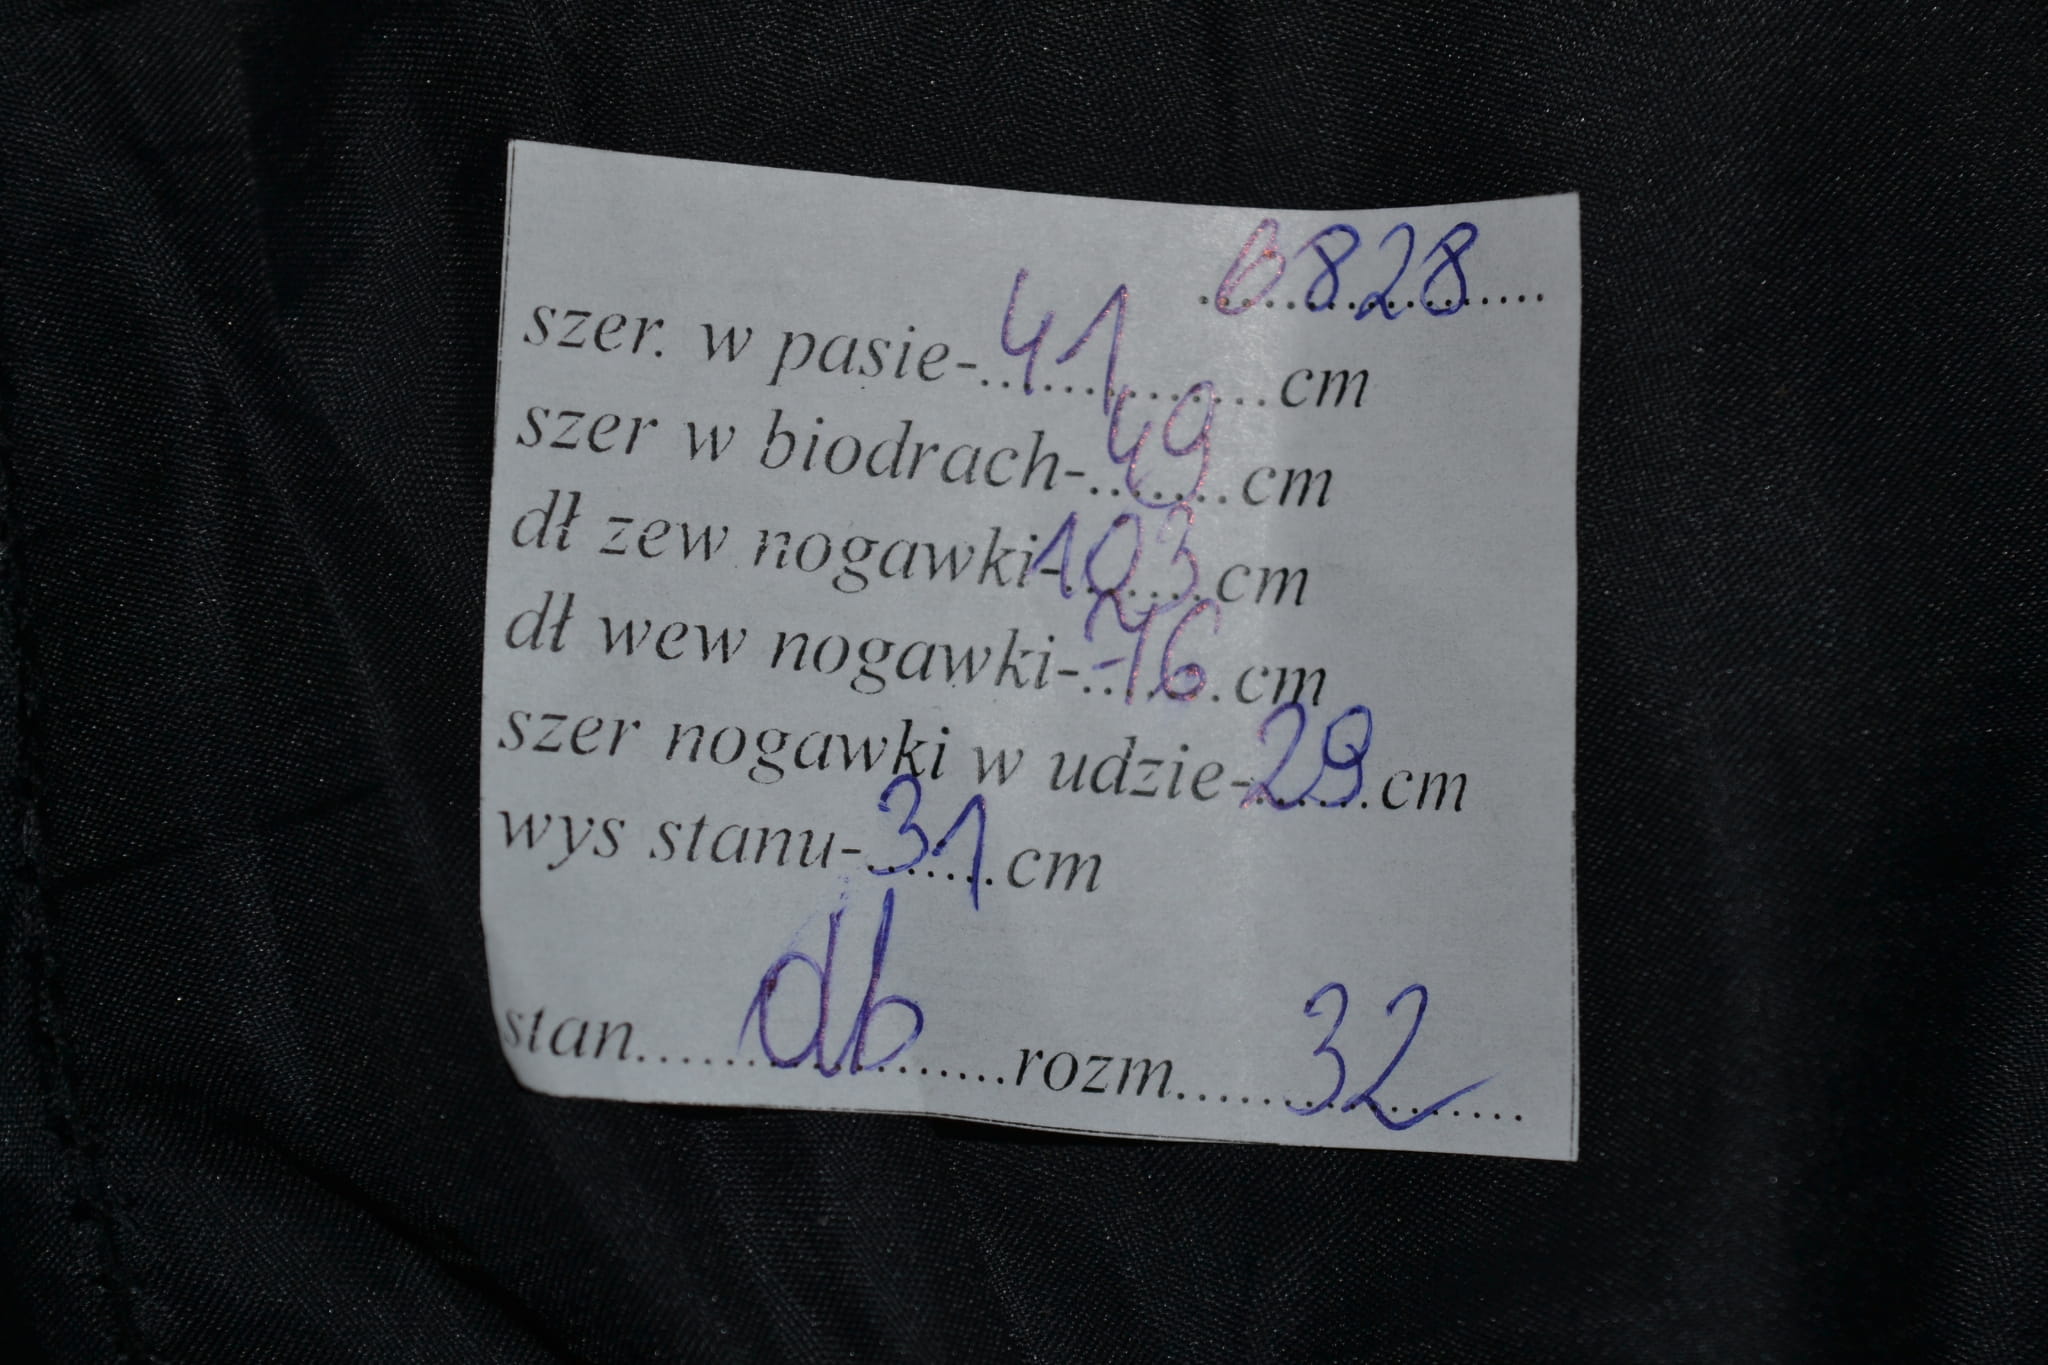 B828
szer. w pasie-41cm
szer w biodrach-49cm
dł zew nogawki-103cm
dł wew nogawki-76cm
szer nogawki w udzie-29cm
wys stanu-31cm
stan......db......rozm......32......